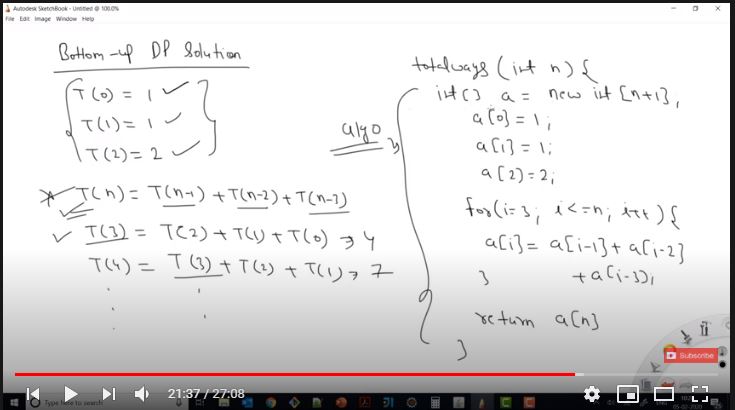 Autodesk SketchBook - Untitled @ 100.0%
File Edit Image Window Help
Bottom-up DP Solution
T(0) = 1
T(1) = 1
T(2) = 2
T(n) = T(n-1) + T(n-2) + T(n-3)
T(3) = T(2) + T(1) + T(0) → 4
T(4) = T(3) + T(2) + T(1) → 7
algo
totalways (int n) {
int[] a = new int [n+1];
a[0] = 1;
a[1] = 1;
a[2] = 2;
for(i=3; i<=n; i++) {
a[i] = a[i-1] + a[i-2]
+ a[i-3];
}
return a[n]
}
Subscribe
21:37 / 27:08
Type here to search